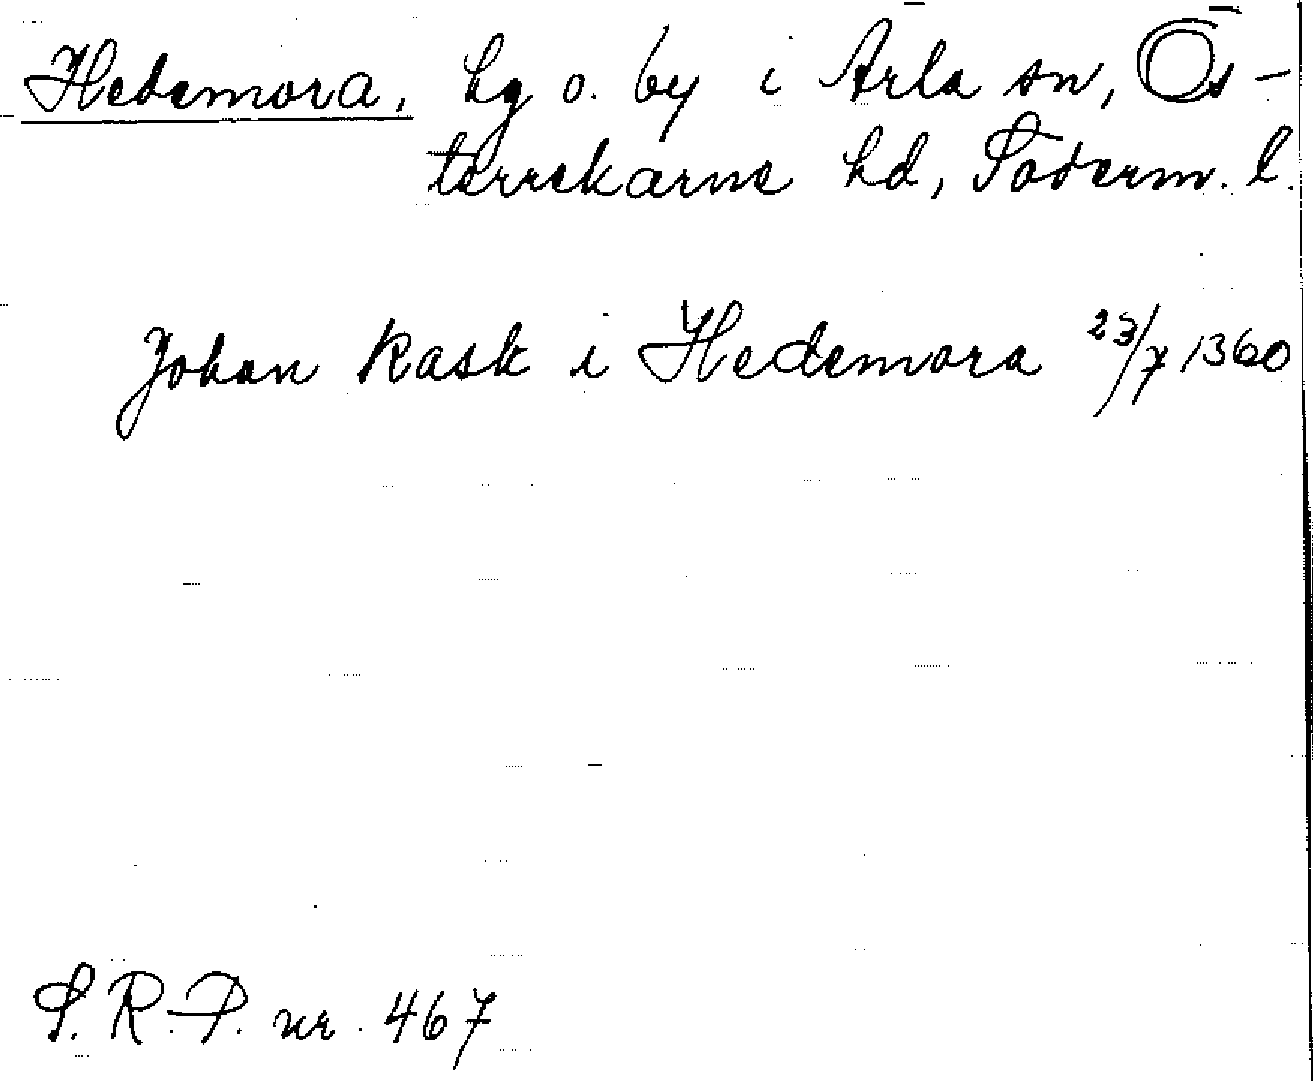 Hedemora, hg o. by i Ärla sn, Ös-
terrekarne hd, Söderm. l.
Johan Rask i Hedemora 23/7 1360
S. R. P. nr. 467